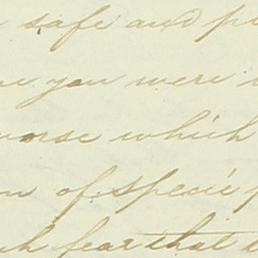 safe and p
you were
which
of specie
fear that